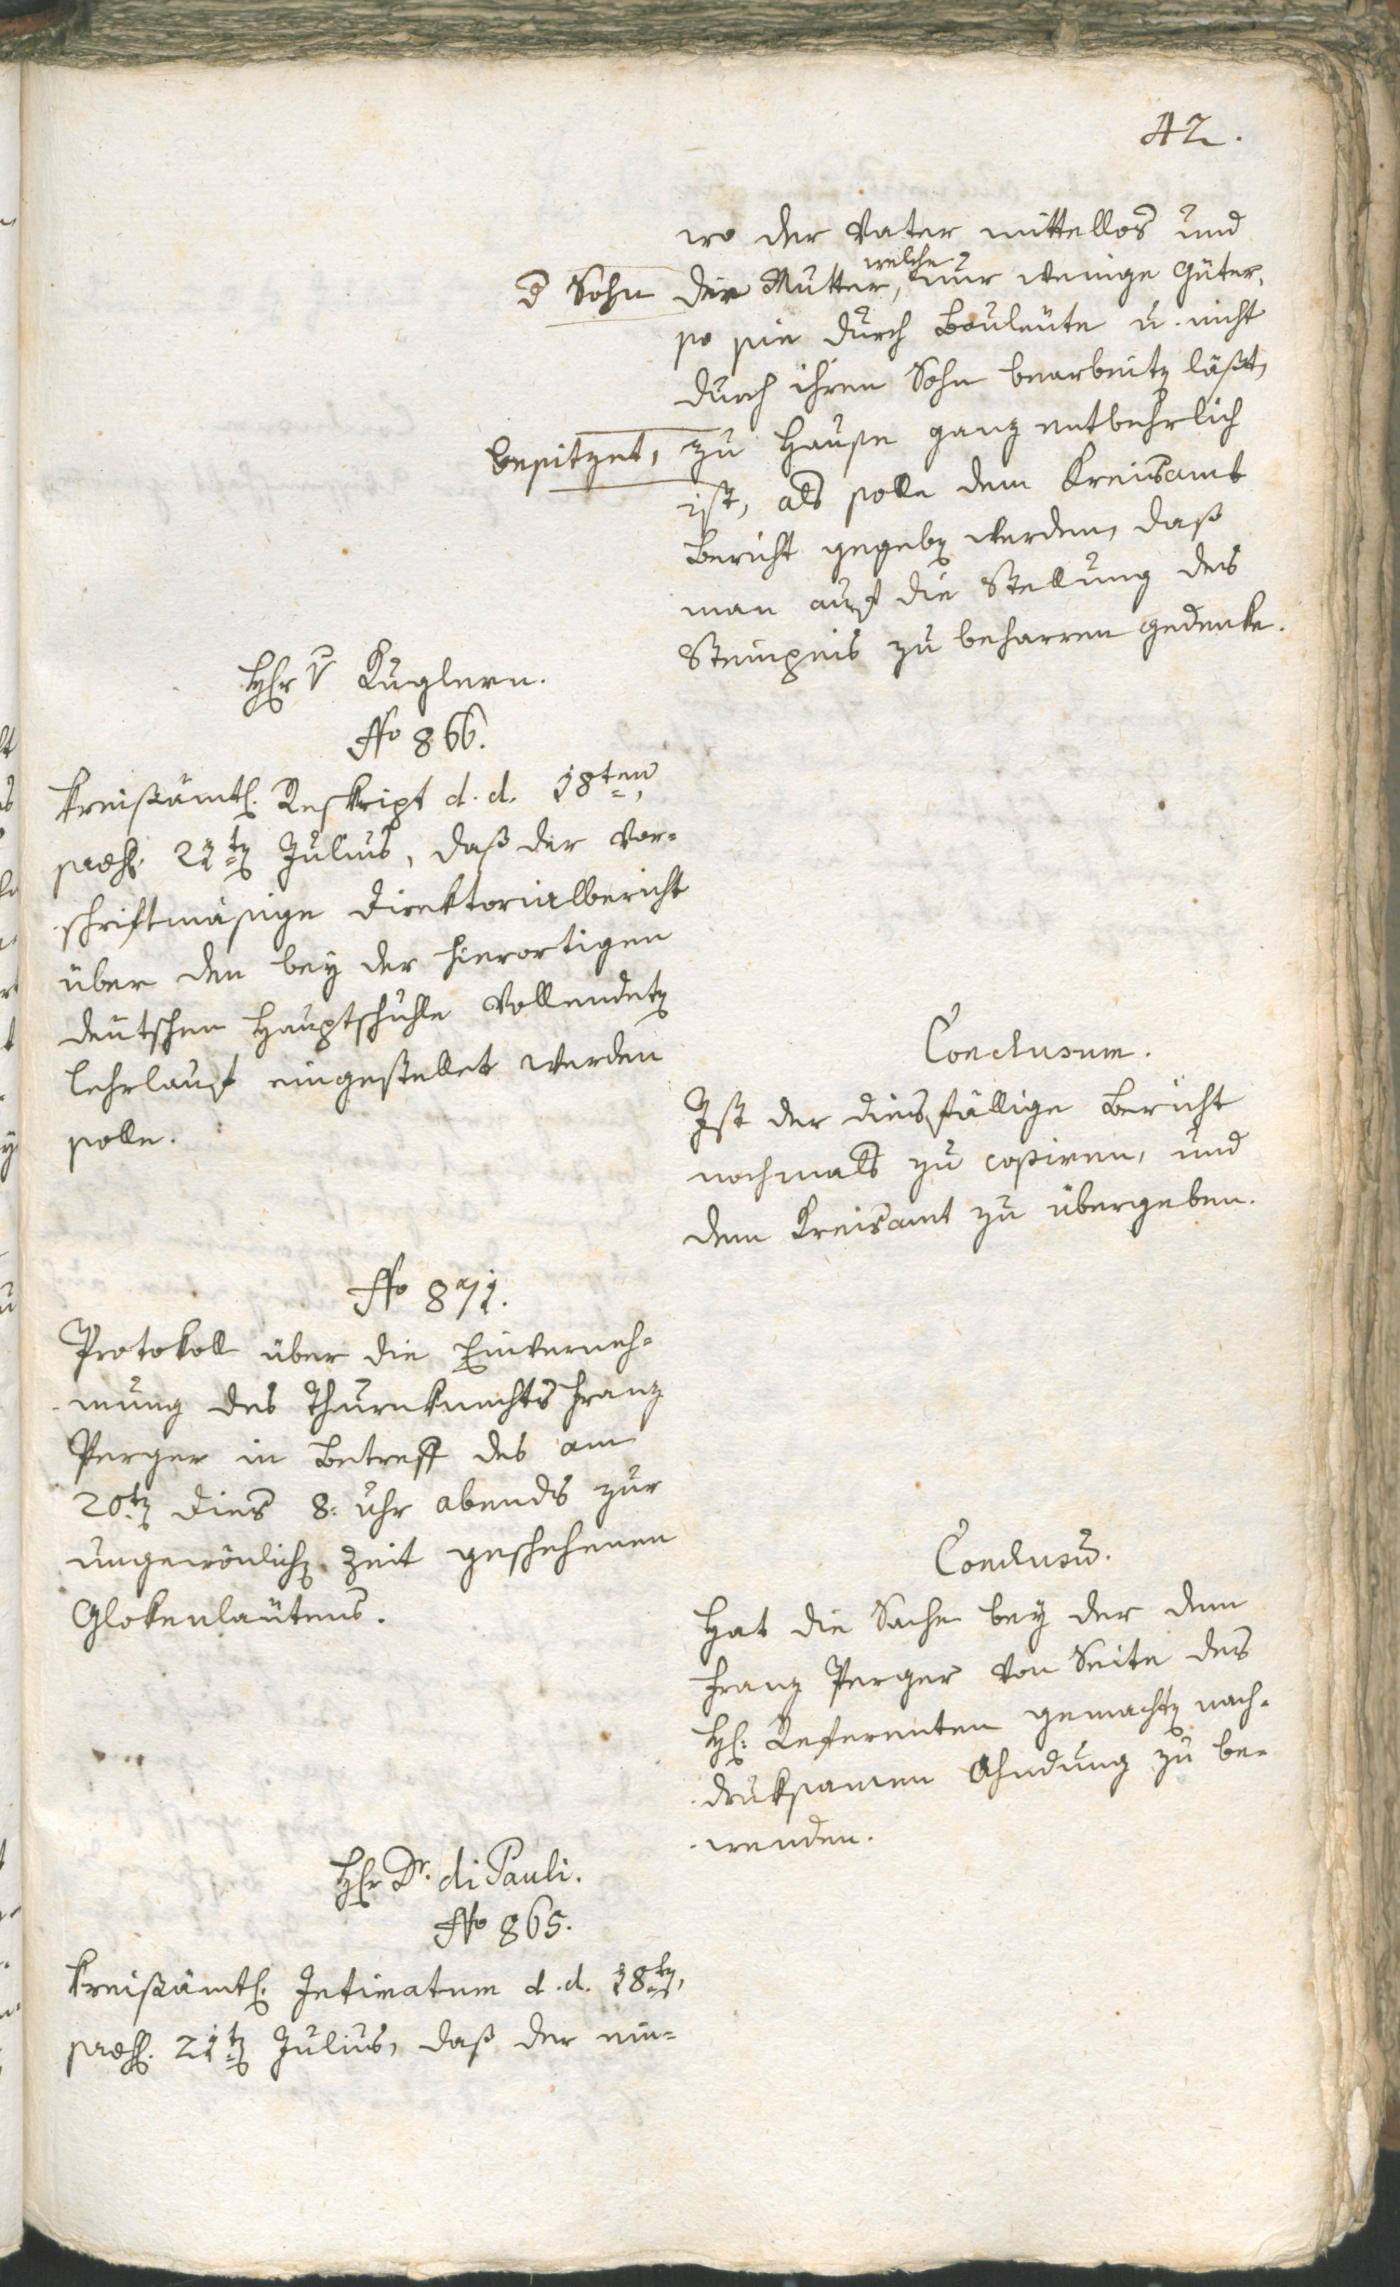 42.
wo der Vater mittellos und
welche
d Sohn der Mutter, nur wenige Güter,
so sie durch Bauleute u. nicht
durch ihren Sohn bearbeitn läßt,
besitzet, zu Hause ganz entbehrlich
ist, als solle dem Kreisamt
Bericht gegebn werden, daß
man auf die Stellung des
zu beharren gedenke.
Hr v Kuglern.
No 866.
Kreißämtl. Reskript d. d. 18ten,
praes. 21tn Julius, daß der vor-
schriftmäsige Direktorialbericht
über den bey der hierortigen
deutschen Hauptschuhle vollendetn
Lehrlauf eingestellet werden
solle.
Conclusum.
Ist der diesfällige Bericht
nochmals zu copiren, und
dem Kreisamt zu übergeben.
No 871.
Protokoll über die Einverneh-
mung des Thurnknechts Franz
Perger in Betreff des am
20tn dies 8: Uhr abends zur
ungewönlichn Zeit geschehenen
Glokenläutens.
Conclusū.
Hat die Sache bey der dem
Franz Perger von Seite des
H: Referenten gemachtn nach-
druksamen Ahndung zu be-
wenden.
Hr Dr. di Pauli.
No 865.
Kreißämtl. Intimatum d. d. 18tn,
praes. 21tn Julius, daß der ein-